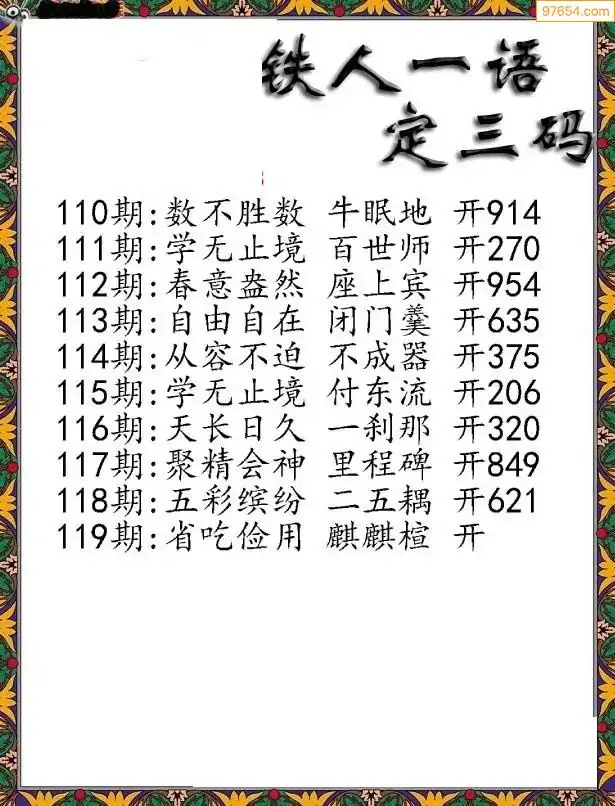 97654.com
铁人一语
定三码
110期:数不胜数 牛眠地 开914
111期:学无止境 百世师 开270
112期:春意盎然 座上宾 开954
113期:自由自在 闭门羹 开635
114期:从容不迫 不成器 开375
115期:学无止境 付东流 开206
116期:天长日久 一刹那 开320
117期:聚精会神 里程碑 开849
118期:五彩缤纷 二五耦 开621
119期:省吃俭用 麒麒楦 开